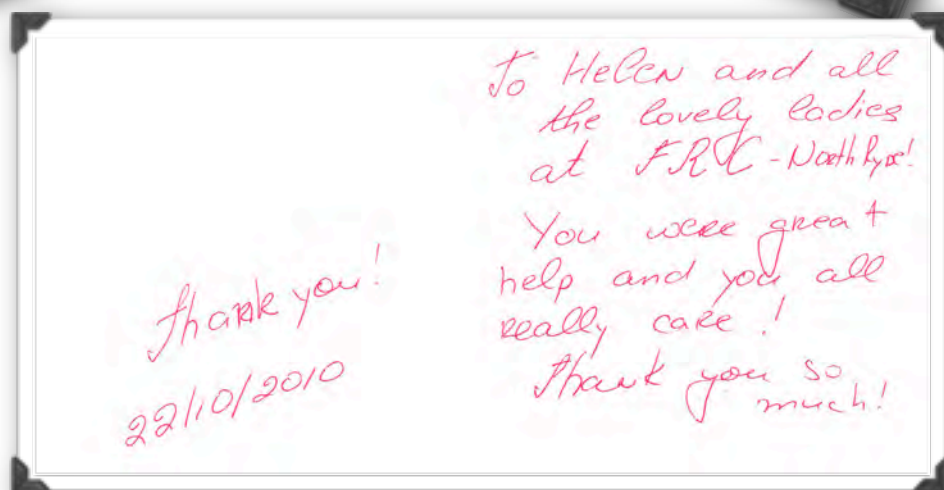 Thank you!
22/10/2010
To Helen and all
the lovely ladies
at FRC - North Ryde!
You were great
help and you all
really care!
Thank you so
much!